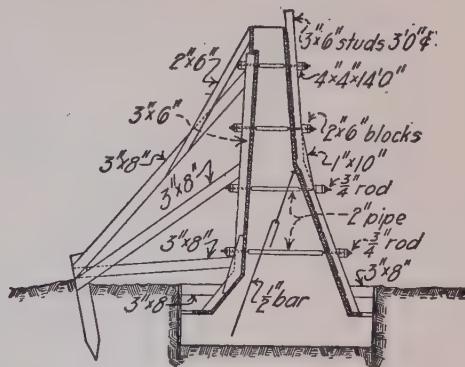 3"x6" studs 3'0"¢
2"x6"
4"x4"x14'0"
3"x6"
2"x6" blocks
3"x8"
1"x10"
3"x8"
3/4" rod
2" pipe
3"x8"
3/4" rod
3"x8"
3"x8
1/2" bar